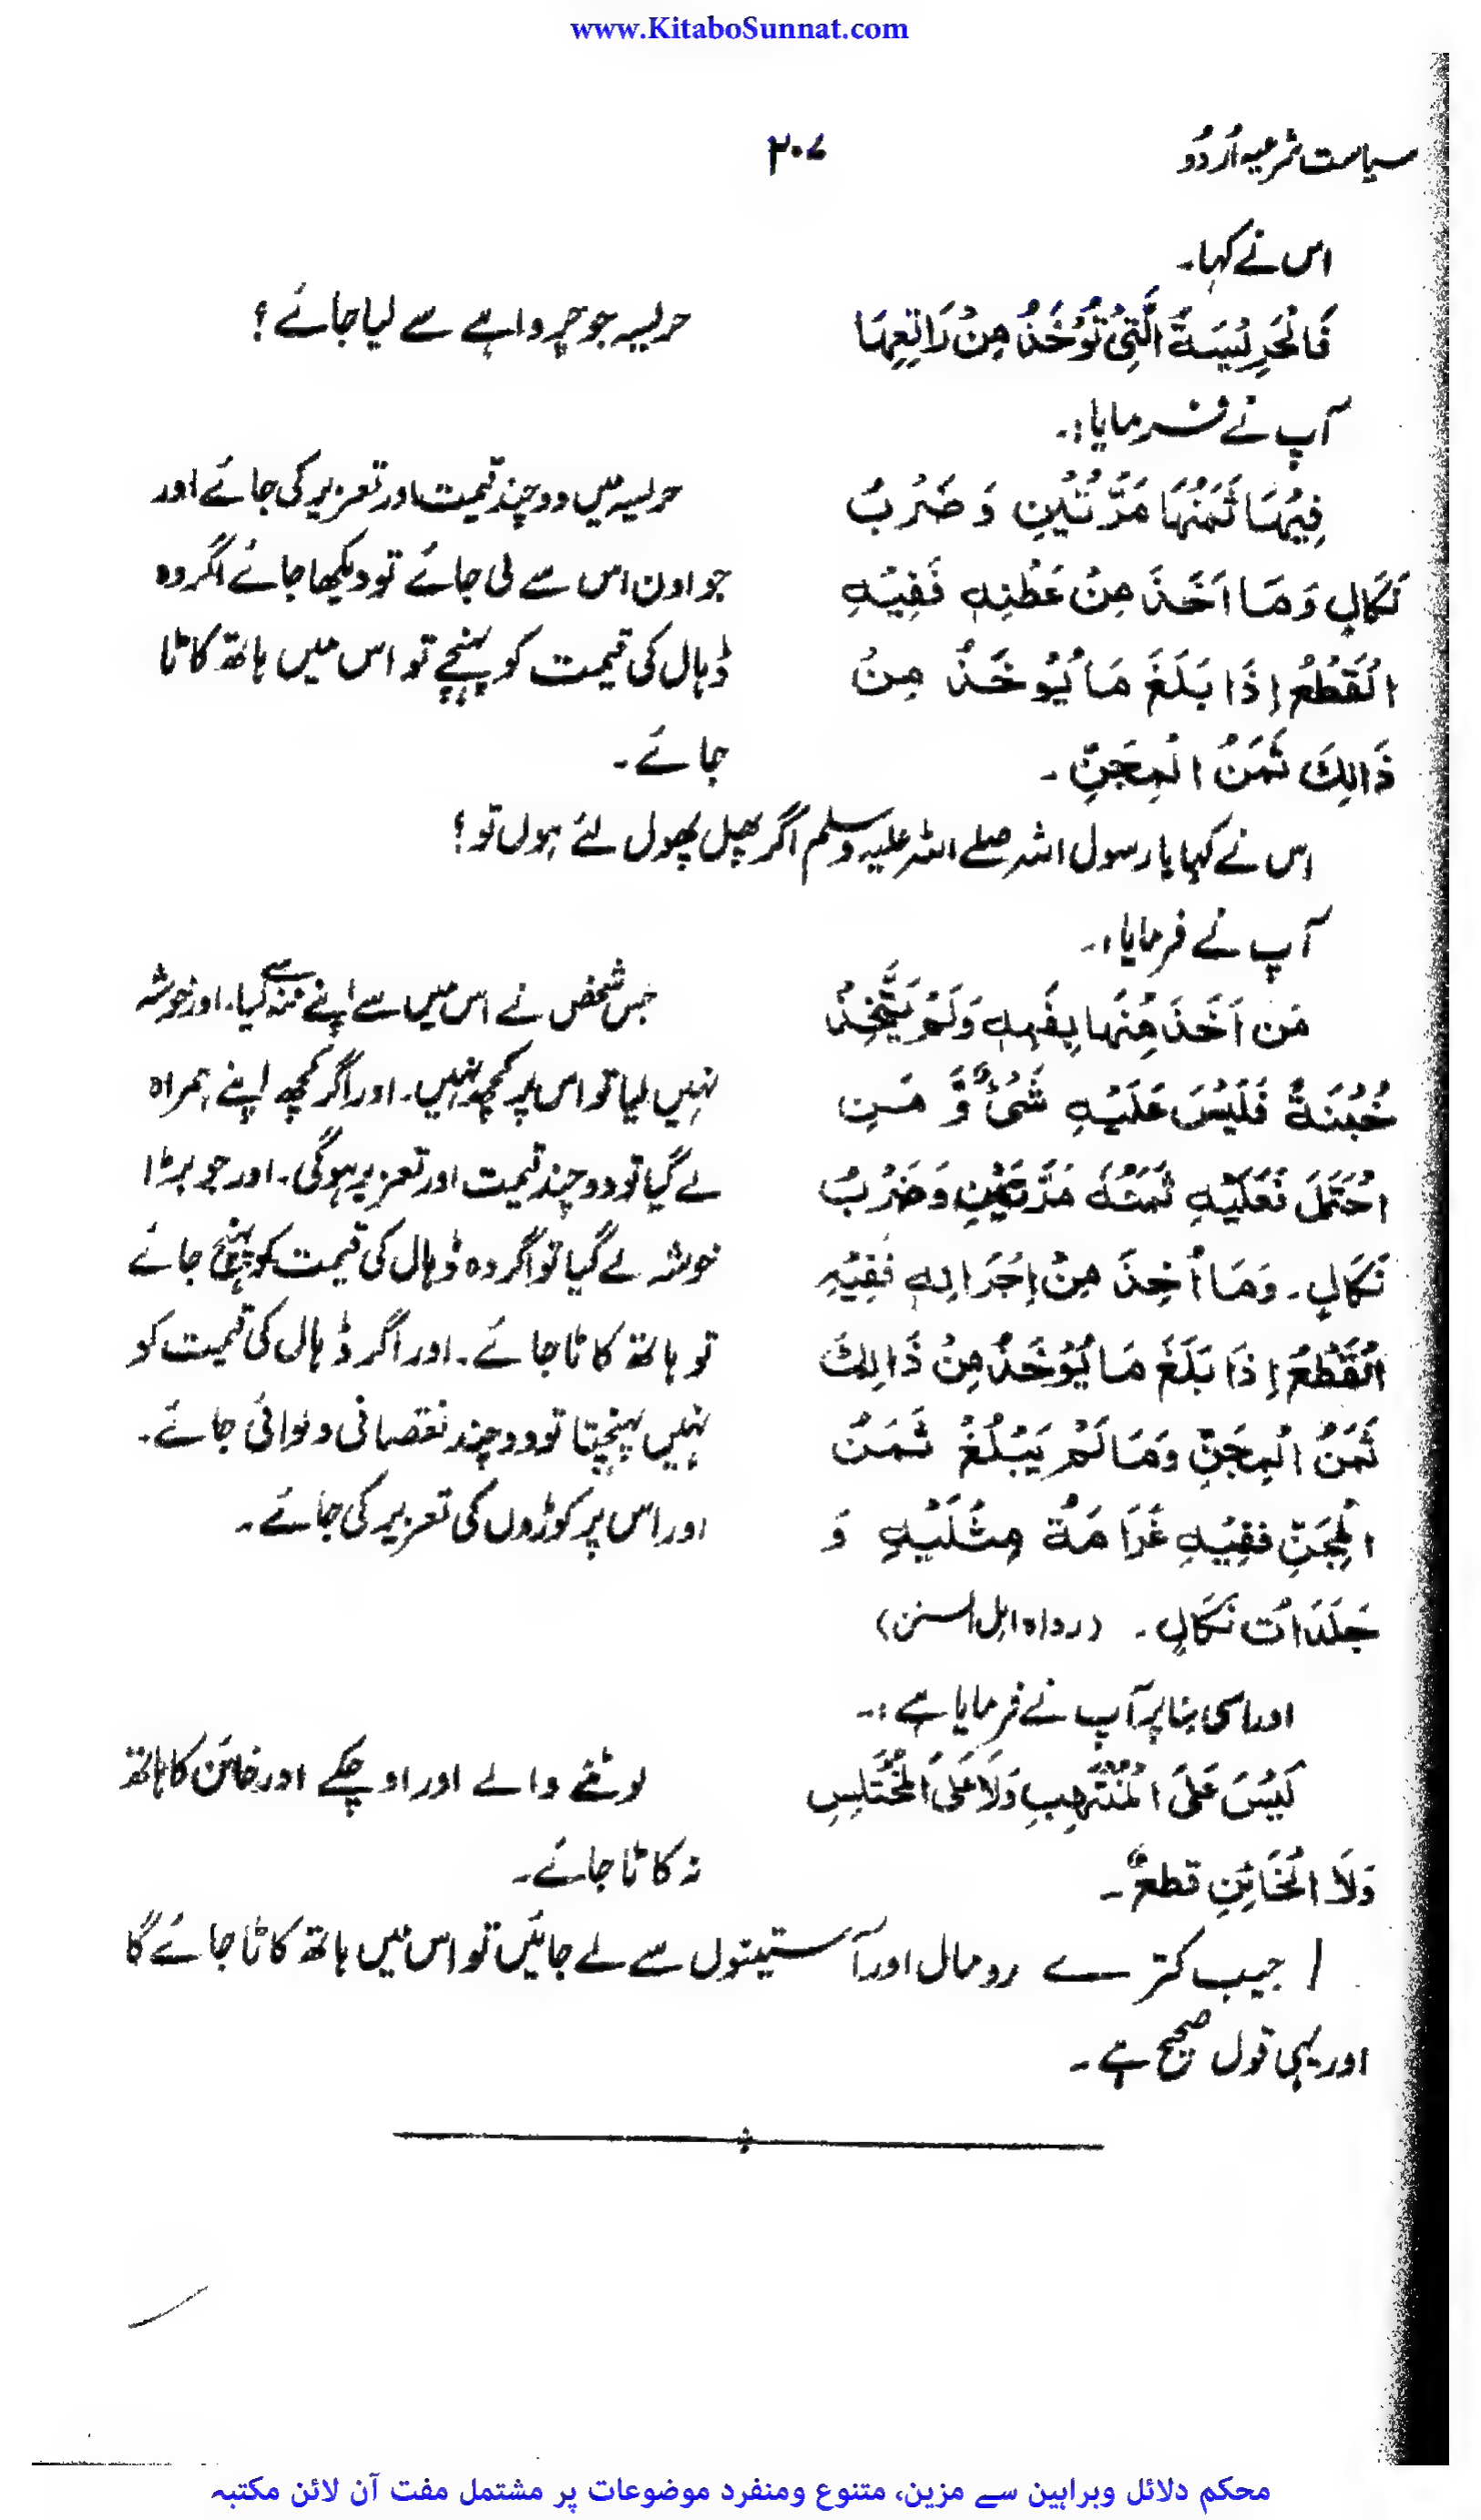 www.KitaboSunnat.com
سیاست شرعیہ اُردُو
۲۰۷
اس نے کہا۔
فَالْحَرِيْسَةُ الَّتِيْ تُوْخَذُ مِنْ رَاتِعِهَا
حریسہ جو چرواہے سے لیا جائے؟
آپ نے فرمایا:۔
فِيْهَا ثَمَنُهَا مَرَّتَيْنِ وَ ضَرْبُ
نَكَالٍ وَمَا اَخَذَ مِنْ عَطْنِهٖ فَفِيْهِ
الْقَطْعُ اِذَا بَلَغَ مَا يُوْخَذُ مِنْ
ذَالِكَ ثَمَنُ الْمِجَنِّ ۔
حریسہ میں دو چند قیمت اور تعزیر کی جائے اور
جو اون اس سے لی جائے تو دیکھا جائے اگر وہ
ڈہال کی قیمت کو پہنچے تو اس میں ہاتھ کاٹا
جائے۔
اس نے کہا یا رسول اللہ صلے اللہ علیہ وسلم اگر پھل پھول لئے ہوں تو؟
آپ نے فرمایا:۔
مَن اَخَذَ مِنْهَا بِفَمِهٖ وَلَمْ يَتَّخِذْ
خُبْنَةً فَلَيْسَ عَلَيْهِ شَيْءٌ وَّ مَنِ
احْتَمَلَ فَعَلَيْهِ ثَمَنُهٗ مَرَّتَيْنِ وَضَرْبُ
نَكَالٍ۔ وَمَا اُخِذَ مِنْ اِجْرَانِهٖ فَفِيْهِ
الْقَطْعُ اِذَا بَلَغَ مَا يُوْخَذُ مِنْ ذَالِكَ
ثَمَنُ الْمِجَنِّ وَمَا لَمْ يَبْلُغْ ثَمَنَ
الْمِجَنِّ فَفِيْهِ غَرَامَةُ مِثْلَيْهِ وَ
جَلَدَاتُ نَكَالٍ۔ (رواہ اہل السنن)
جس شخص نے اس میں سے اپنے منہ سے کہا۔ اور خوشہ
نہیں لیا تو اس پر کچھ نہیں۔ اور اگر کچھ اپنے ہمراہ
لے گیا تو دو چند قیمت اور تعزیر ہوگی۔ اور جو بڑا
خوشہ لے گیا تو اگر وہ ڈہال کی قیمت کو پہنچ جائے
تو ہاتھ کاٹا جائے۔ اور اگر ڈہال کی قیمت کو
نہیں پہنچتا تو دو چند نقصانی دلوائی جائے۔
اور اس پر کوڑوں کی تعزیر کی جائے۔
اور اسی بنا پر آپ نے فرمایا ہے:۔
لَيْسَ عَلَى الْمُنْتَهِبِ وَلَا عَلَى الْمُخْتَلِسِ
وَلَا الْخَائِنِ قطعٌ۔
لوٹنے والے اور اوچکے اور خائن کا ہاتھ
نہ کاٹا جائے۔
جیب کترے رومال اور آستینوں سے لے جائیں تو اس میں ہاتھ کاٹا جائے گا
اور یہی قول صحیح ہے۔
محکم دلائل وبراہین سے مزین، متنوع ومنفرد موضوعات پر مشتمل مفت آن لائن مکتبہ